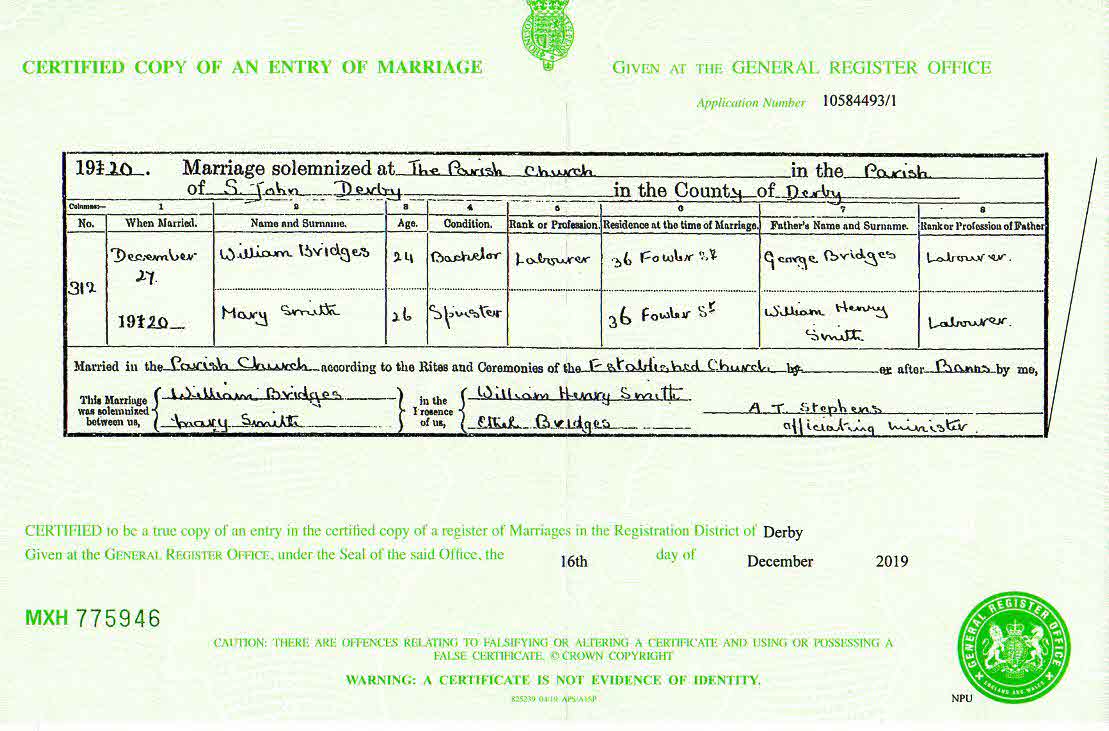 CERTIFIED COPY OF AN ENTRY OF MARRIAGE
GIVEN AT THE GENERAL REGISTER OFFICE
Application Number 10584493/1
1920. Marriage solemnized at The Parish Church in the Parish
of S. John Derby in the County of Derby
Columns:— 1 2 3 4 5 6 7 8
No. When Married. Name and Surname. Age. Condition. Rank or Profession. Residence at the time of Marriage. Father's Name and Surname. Rank or Profession of Father
312 December 27. William Bridges 24 Bachelor Labourer 36 Fowler St George Bridges Labourer.
1920 Mary Smith 26 Spinster 36 Fowler St William Henry Smith Labourer.
Married in the Parish Church according to the Rites and Ceremonies of the Established Church by or after Banns by me,
This Marriage was solemnized between us, William Bridges Mary Smith in the Presence of us, William Henry Smith Ethel Bridges A. T. Stephens officiating minister.
CERTIFIED to be a true copy of an entry in the certified copy of a register of Marriages in the Registration District of Derby
Given at the GENERAL REGISTER OFFICE, under the Seal of the said Office, the 16th day of December 2019
MXH 775946
CAUTION: THERE ARE OFFENCES RELATING TO FALSIFYING OR ALTERING A CERTIFICATE AND USING OR POSSESSING A
FALSE CERTIFICATE. © CROWN COPYRIGHT
WARNING: A CERTIFICATE IS NOT EVIDENCE OF IDENTITY.
825239 04/19 APS/A3SP
GENERAL REGISTER OFFICE
ENGLAND AND WALES
NPU